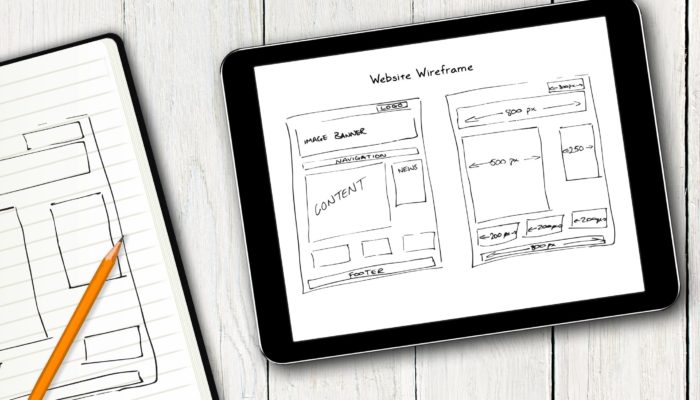 Website Wireframe
LOGO
IMAGE BANNER
NAVIGATION
CONTENT
NEWS
FOOTER
800 px
px
250
200 px
200px
200px
800 px